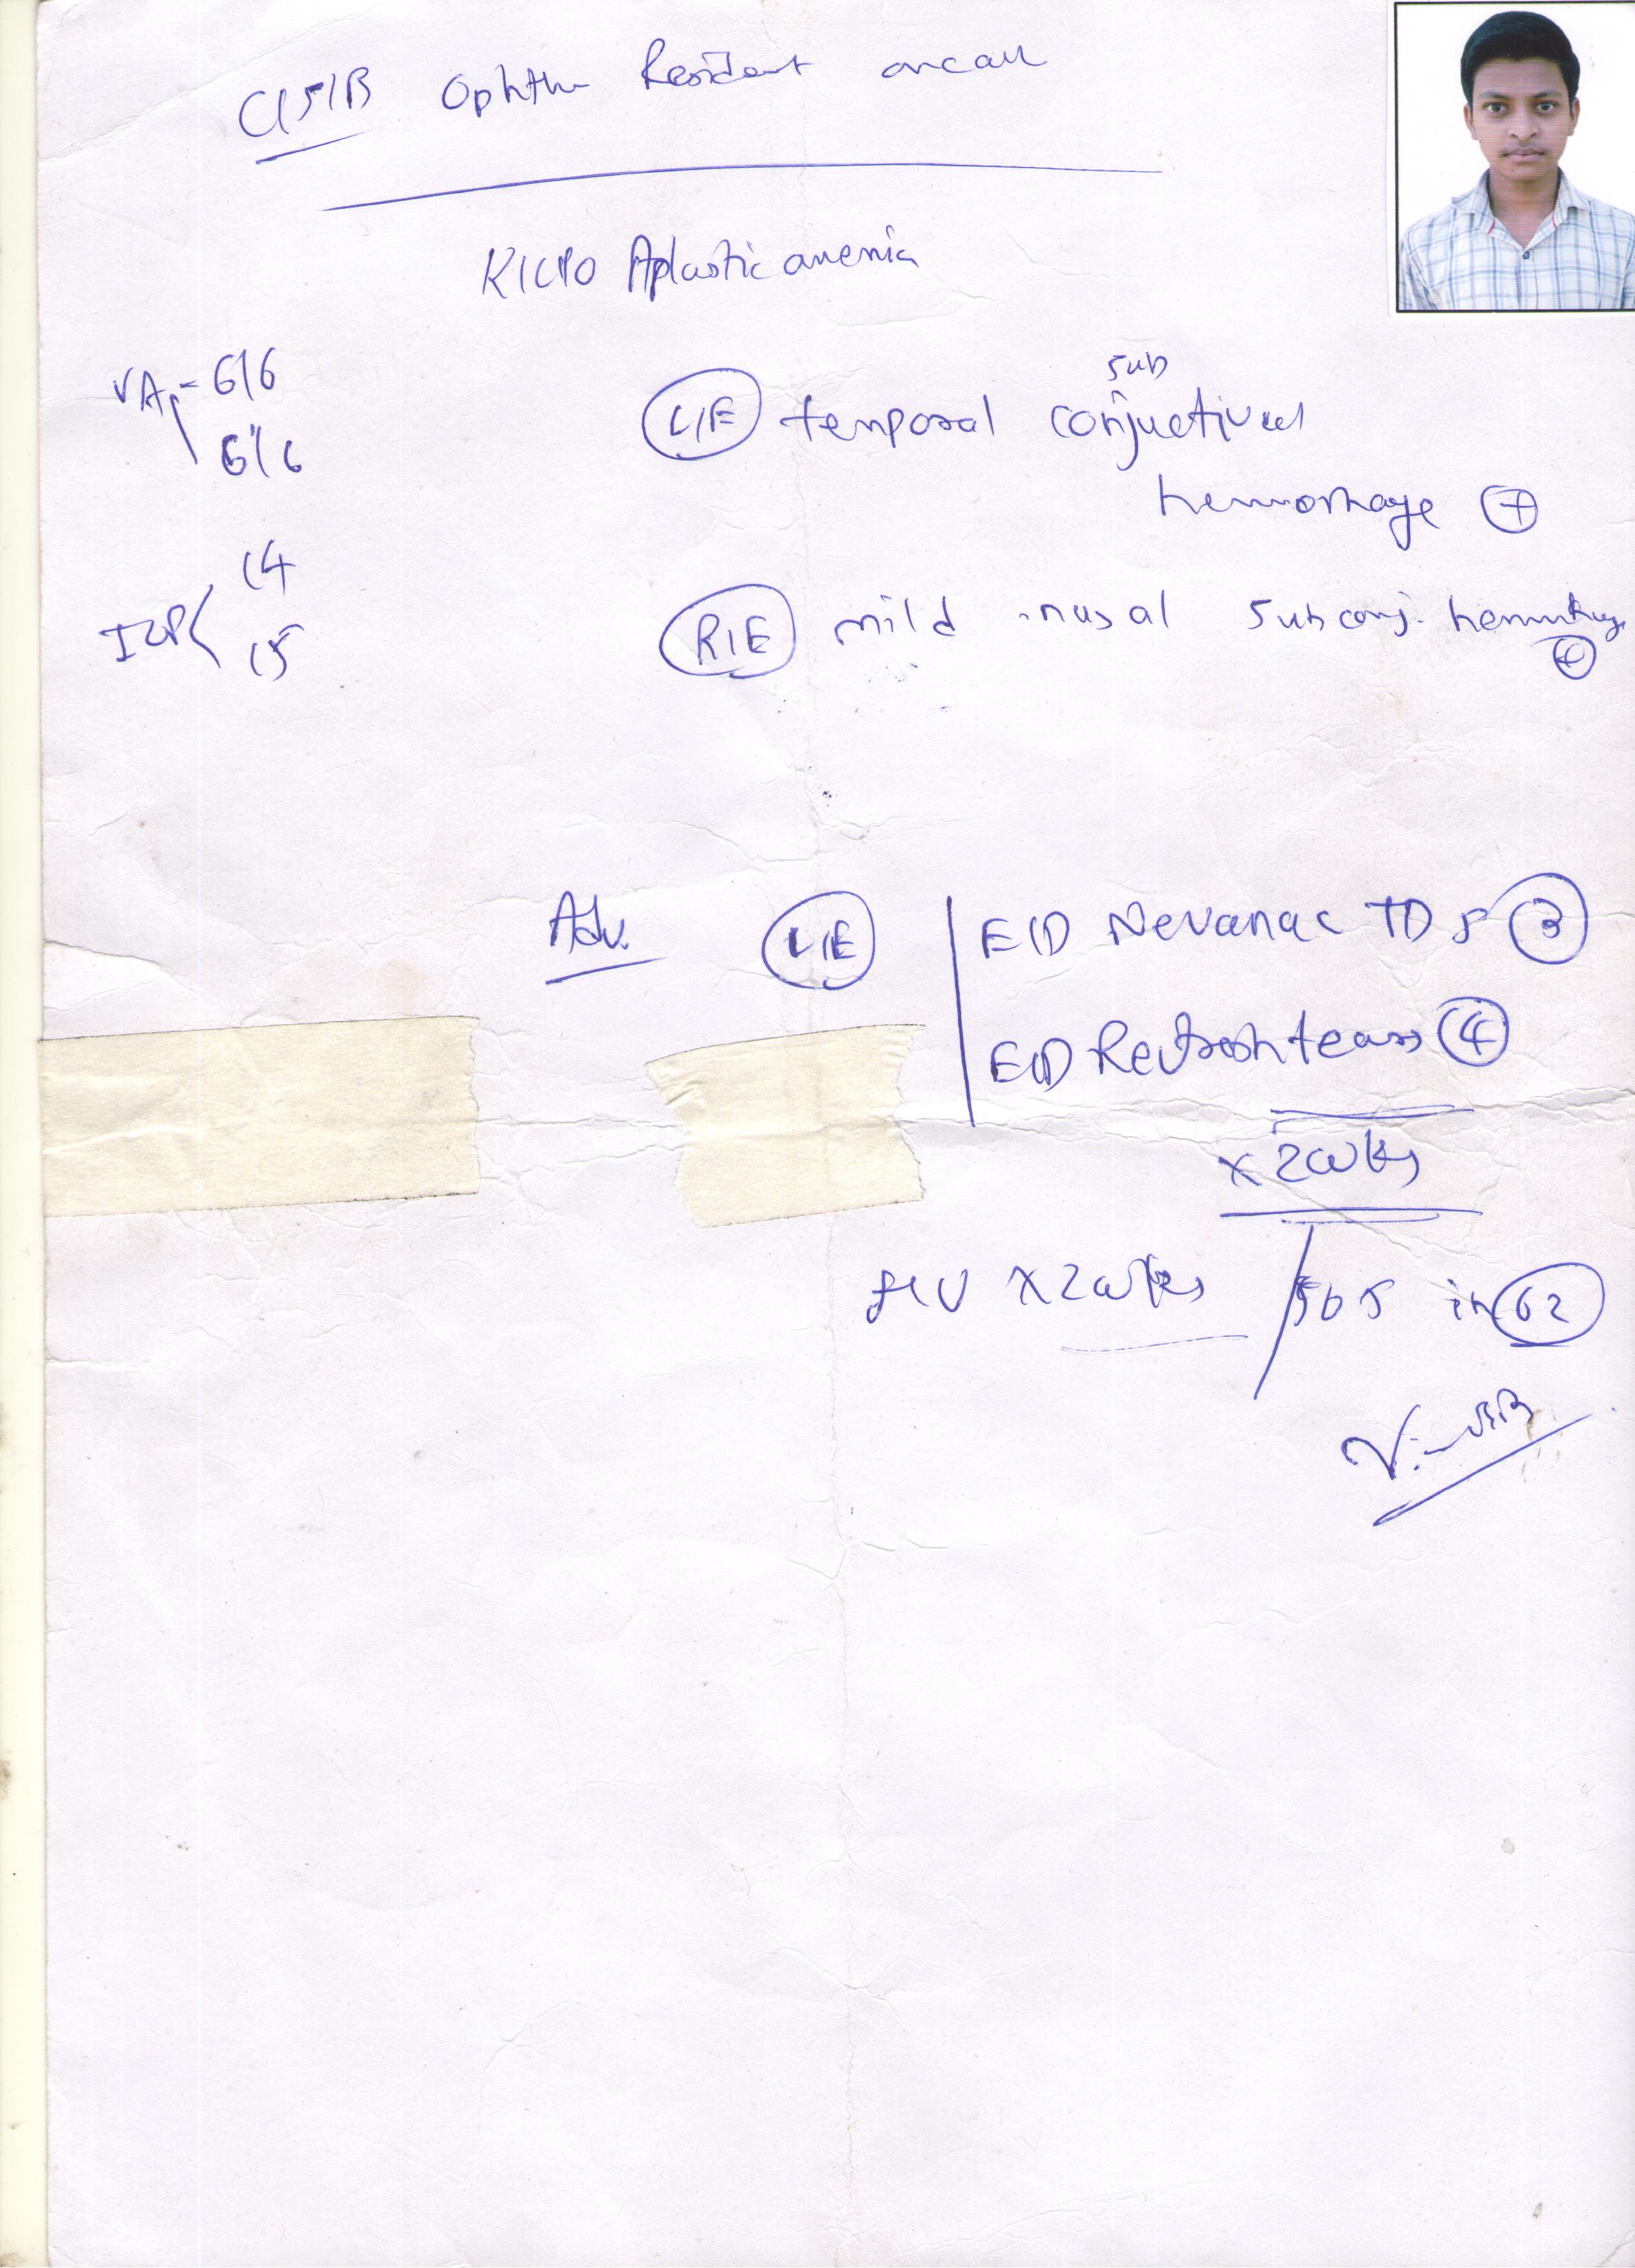 C/S/B Ophth Resident oncall
K/C/O Aplastic anemia
VA - 6/6
6/6
L/E temporal sub conjuctival
hemorrhage +
IOP 14
15
R/E mild nasal subconj. hemorrhage +
Adv. L/E E/D Nevanac TDS 3
E/D Refresh tears 4
x 2 wks
f/u x 2 wks / SOS in 62